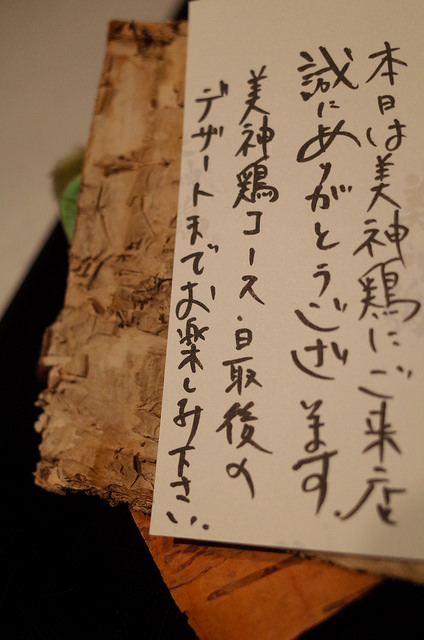 本日は美神鶏にご来店
誠にありがとうございます。
美神鶏コース・日取後の
デザートまでお楽しみ下さい。